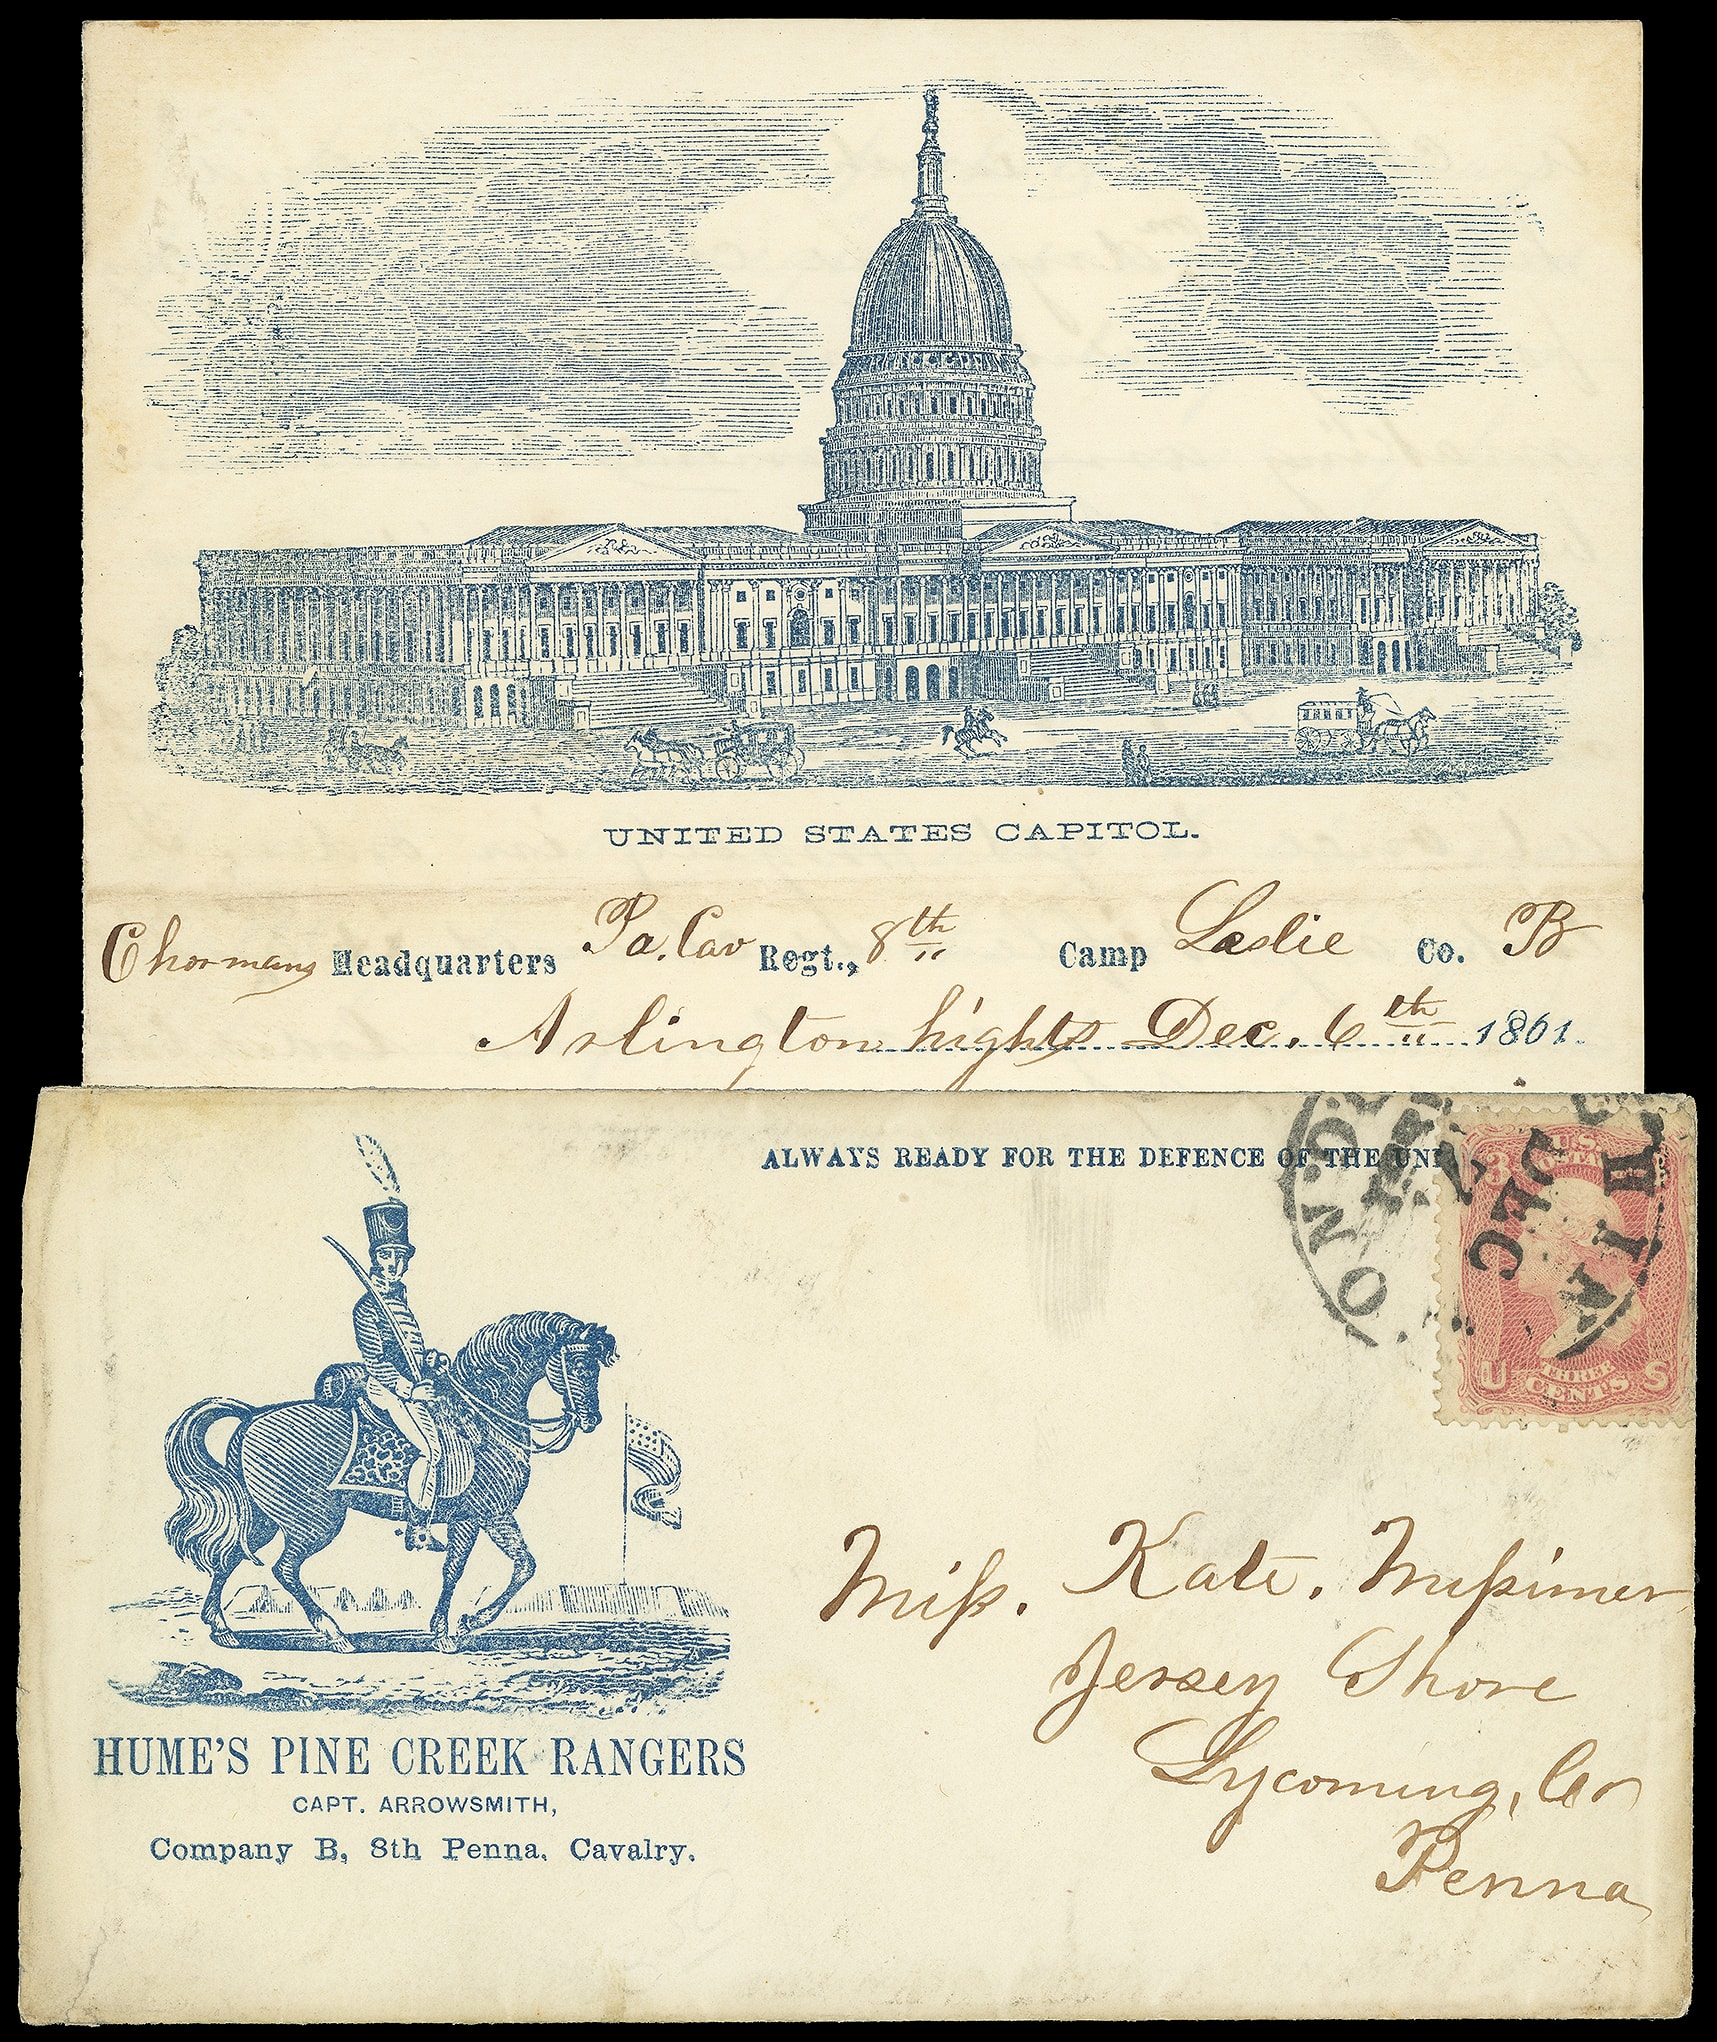 UNITED STATES CAPITOL.
Chormans Headquarters Pa. Cav Regt., 8th Camp Leslie Co. B
Arlington hights Dec. 6th 1861.
ALWAYS READY FOR THE DEFENCE OF THE UNI
ON. D.C.
DEC
3 U.S. POSTAGE
U THREE CENTS S
HUME'S PINE CREEK RANGERS
CAPT. ARROWSMITH,
Company B, 8th Penna. Cavalry.
Miss. Kate. Messimer
Jersey Shore
Lycoming, Co
Penna